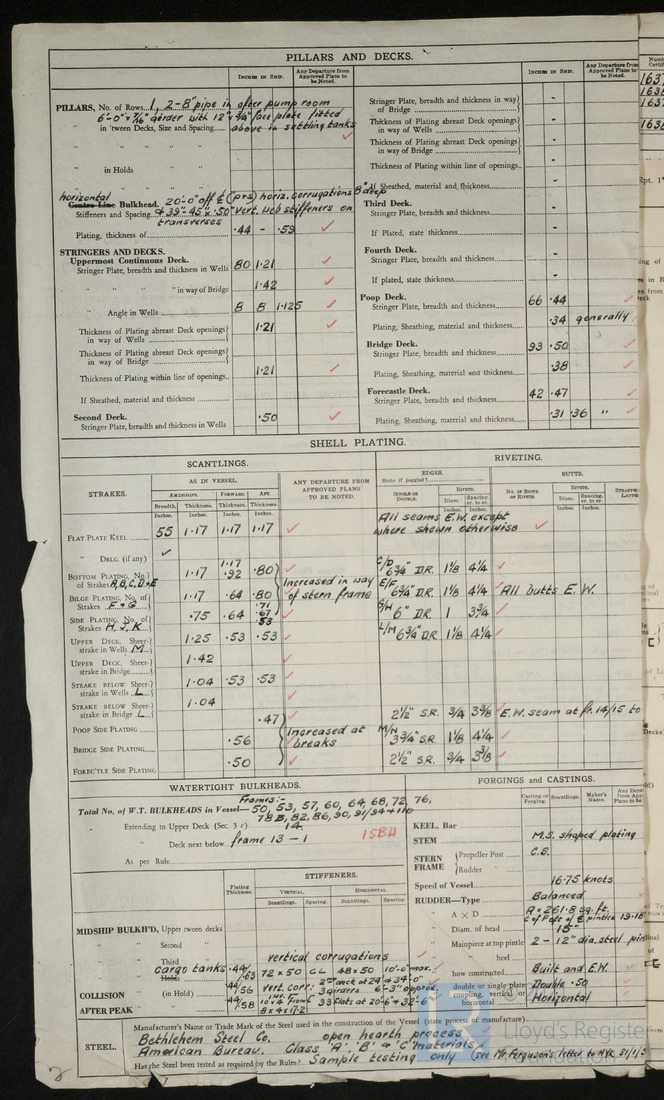 PILLARS AND DECKS.
INCHES IN SHIP.
Any Departure from Approved Plans to be Noted.
PILLARS, No. of Rows 1, 2-8" pipe in after pump room
6'-0" x 7/16" girder with 12" x 3/4" face plate fitted
" in 'tween Decks, Size and Spacing above in settling tanks
" " " "
" in Holds
" " " "
horizontal
Centre Line Bulkhead. 20'-0" off ℄ (p+s) horiz. corrugations 8" deep
Stiffeners and Spacing & 39"-45" x .50" vert. web stiffeners on
transverses
Plating, thickness of .44 - .59
STRINGERS AND DECKS.
Uppermost Continuous Deck.
Stringer Plate, breadth and thickness in Wells 80 1.21
" " " " in way of Bridge 1.42
" Angle in Wells 8 8 1.125
Thickness of Plating abreast Deck openings in way of Wells 1.21
Thickness of Plating abreast Deck openings in way of Bridge
Thickness of Plating within line of openings 1.21
If Sheathed, material and thickness
Second Deck. .50
Stringer Plate, breadth and thickness in Wells
INCHES IN SHIP.
Any Departure from Approved Plans to be Noted.
Stringer Plate, breadth and thickness in way of Bridge -
Thickness of Plating abreast Deck openings in way of Wells -
Thickness of Plating abreast Deck openings in way of Bridge -
Thickness of Plating within line of openings -
If Sheathed, material and thickness -
Third Deck.
Stringer Plate, breadth and thickness -
If Plated, state thickness -
Fourth Deck.
Stringer Plate, breadth and thickness -
If plated, state thickness -
Poop Deck.
Stringer Plate, breadth and thickness 66 .44
Plating, Sheathing, material and thickness .34 generally
Bridge Deck.
Stringer Plate, breadth and thickness 93 .50
Plating, Sheathing, material and thickness .38
Forecastle Deck.
Stringer Plate, breadth and thickness 42 .47
Plating, Sheathing, material and thickness .31 .36 "
SHELL PLATING.
SCANTLINGS.
RIVETING.
STRAKES.
AS IN VESSEL.
AMIDSHIPS. FORWARD. AFT.
Breadth. Thickness. Thickness. Thickness.
Inches. Inches. Inches. Inches.
ANY DEPARTURE FROM APPROVED PLANS TO BE NOTED.
EDGES.
State if joggled?
SINGLE OR DOUBLE.
RIVETS.
Diam. Spacing cr. to cr.
Inches. Inches.
BUTTS.
NO. OF ROWS OF RIVETS.
RIVETS.
Diam. Spacing cr. to cr.
Inches. Inches.
All seams E.W. except
where shewn otherwise
FLAT PLATE KEEL 55 1.17 1.17 1.17
" DBLG. (if any)
BOTTOM PLATING, No. of Strakes A, B, C, D & E 1.17 1.17 .92 .80 C/D 6 3/4" D.R. 1 1/8 4 1/4
Increased in way
of stern frame
BILGE PLATING, No. of Strakes F & G 1.17 .64 .80 E/F 6 3/4" D.R. 1 1/8 4 1/4 All butts E.W.
SIDE PLATING, No. of Strakes H, J, K .75 .64 .71 .67 .53 G/H 6" D.R. 1 3 3/4
UPPER DECK, Sheerstrake in Wells M 1.25 .53 .53 L/M 6 3/4" D.R. 1 1/8 4 1/4
UPPER DECK, Sheerstrake in Bridge 1.42
STRAKE BELOW Sheerstrake in Wells L 1.04 .53 .53
STRAKE BELOW Sheerstrake in Bridge L 1.04
POOP SIDE PLATING .47 2 1/2" S.R. 3/4 3 3/8 E.W. seam at fr. 14/15 to
Increased at
breaks
BRIDGE SIDE PLATING .56 M/N 3 3/4" S.R. 1 1/8 4 1/4
FOREC'TLE SIDE PLATING .50 2 1/2" S.R. 3/4 3 3/8
WATERTIGHT BULKHEADS.
Frames:-
Total No. of W.T. BULKHEADS in Vessel— 50, 53, 57, 60, 64, 68, 72, 76,
78B, 82, 86, 90, 91/94 & 110
" Extending to Upper Deck (Sec. 3 c) 14
" Deck next below frame 13 - 1
15BH
As per Rule
STIFFENERS.
Plating Thickness.
VERTICAL. HORIZONTAL.
Scantlings. Spacing. Scantlings. Spacing.
MIDSHIP BULKH'D, Upper tween decks
" Second "
" Third " vertical corrugations
cargo tanks .44/.63 72 x 50 CL 48 x 50 10'-0" max.
Hold
COLLISION (in Hold) .44/.56 vert. corr. 2nd deck at 24' & 34'-0"
3 girders 6'-3" approx.
AFTER PEAK " .44/.58 33 flats at 20'-6" & 32'-6"
8 x 4 x 17.2
FORGINGS and CASTINGS.
Casting or Forging. Scantlings. Maker's Name.
KEEL, Bar
STEM M.S. shaped plating
STERN FRAME Propeller Post C.S.
Rudder "
Speed of Vessel 16.75 knots
RUDDER—Type Balanced
" A x D A = 261.8 sq. ft.
" Diam. of head 15"
" Mainpiece at top pintle 2 - 12" dia. steel pintles
" " heel
" how constructed Built and E.W.
" double or single plate Double .50
" coupling, vertical or horizontal Horizontal
STEEL.
Manufacturer's Name or Trade Mark of the Steel used in the construction of the Vessel (state process of manufacture)
Bethlehem Steel Co. open hearth process
American Bureau. Class 'A' 'B' & 'C' materials
Has the Steel been tested as required by the Rules? Sample testing only (see Mr Ferguson's letter to NYK 31/1/5
Lloyd's Register
Foundation